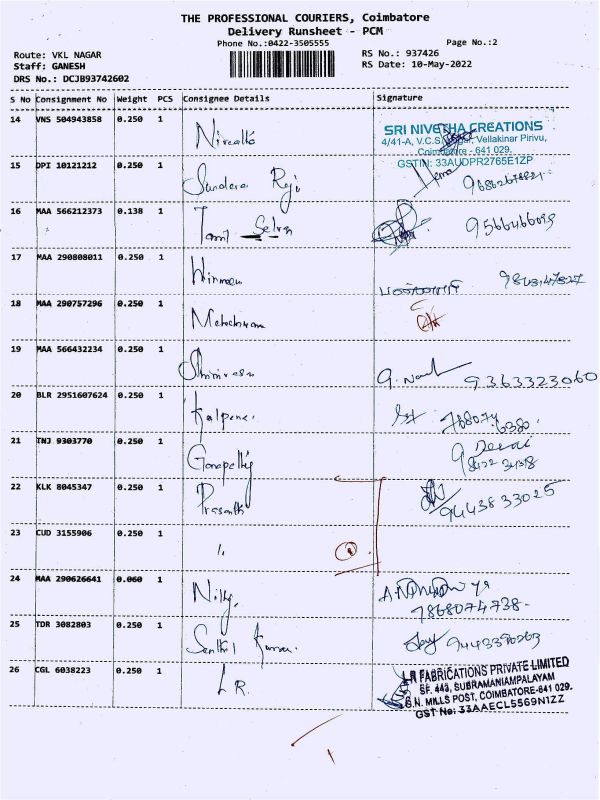 THE PROFESSIONAL COURIERS, Coimbatore
Delivery Runsheet - PCM
Phone No.:0422-3505555
Page No.:2
Route: VKL NAGAR
Staff: GANESH
DRS No.: DCJB93742602
RS No.: 937426
RS Date: 10-May-2022
S No Consignment No Weight PCS Consignee Details Signature
14 VNS 504943858 0.250 1
SRI NIVETHA CREATIONS
4/41-A, V.C.S. Vellakinar Pirivu,
Coimbatore - 641 029.
GSTIN: 33AUDPR2765E1ZP
15 DPI 10121212 0.250 1 Sundara Raj
Hema
16 MAA 566212373 0.138 1 Tamil Selvan
9566466099
17 MAA 290808011 0.250 1
18 MAA 290757296 0.250 1
19 MAA 566432234 0.250 1 Srinivasan
9363323060
20 BLR 2951607624 0.250 1 Kalpana
21 TNJ 9303770 0.250 1 Ganapathy
22 KLK 8045347 0.250 1 Prasanth
9443833025
23 CUD 3155906 0.250 1 "
24 MAA 290626641 0.060 1
7868074738
25 TDR 3082803 0.250 1 Senthil Kumar
26 CGL 6038223 0.250 1 L.R.
L R FABRICATIONS PRIVATE LIMITED
SF. 443, SUBRAMANIAMPALAYAM
G.N. MILLS POST, COIMBATORE-641 029.
GST No: 33AAECL5569N1ZZ